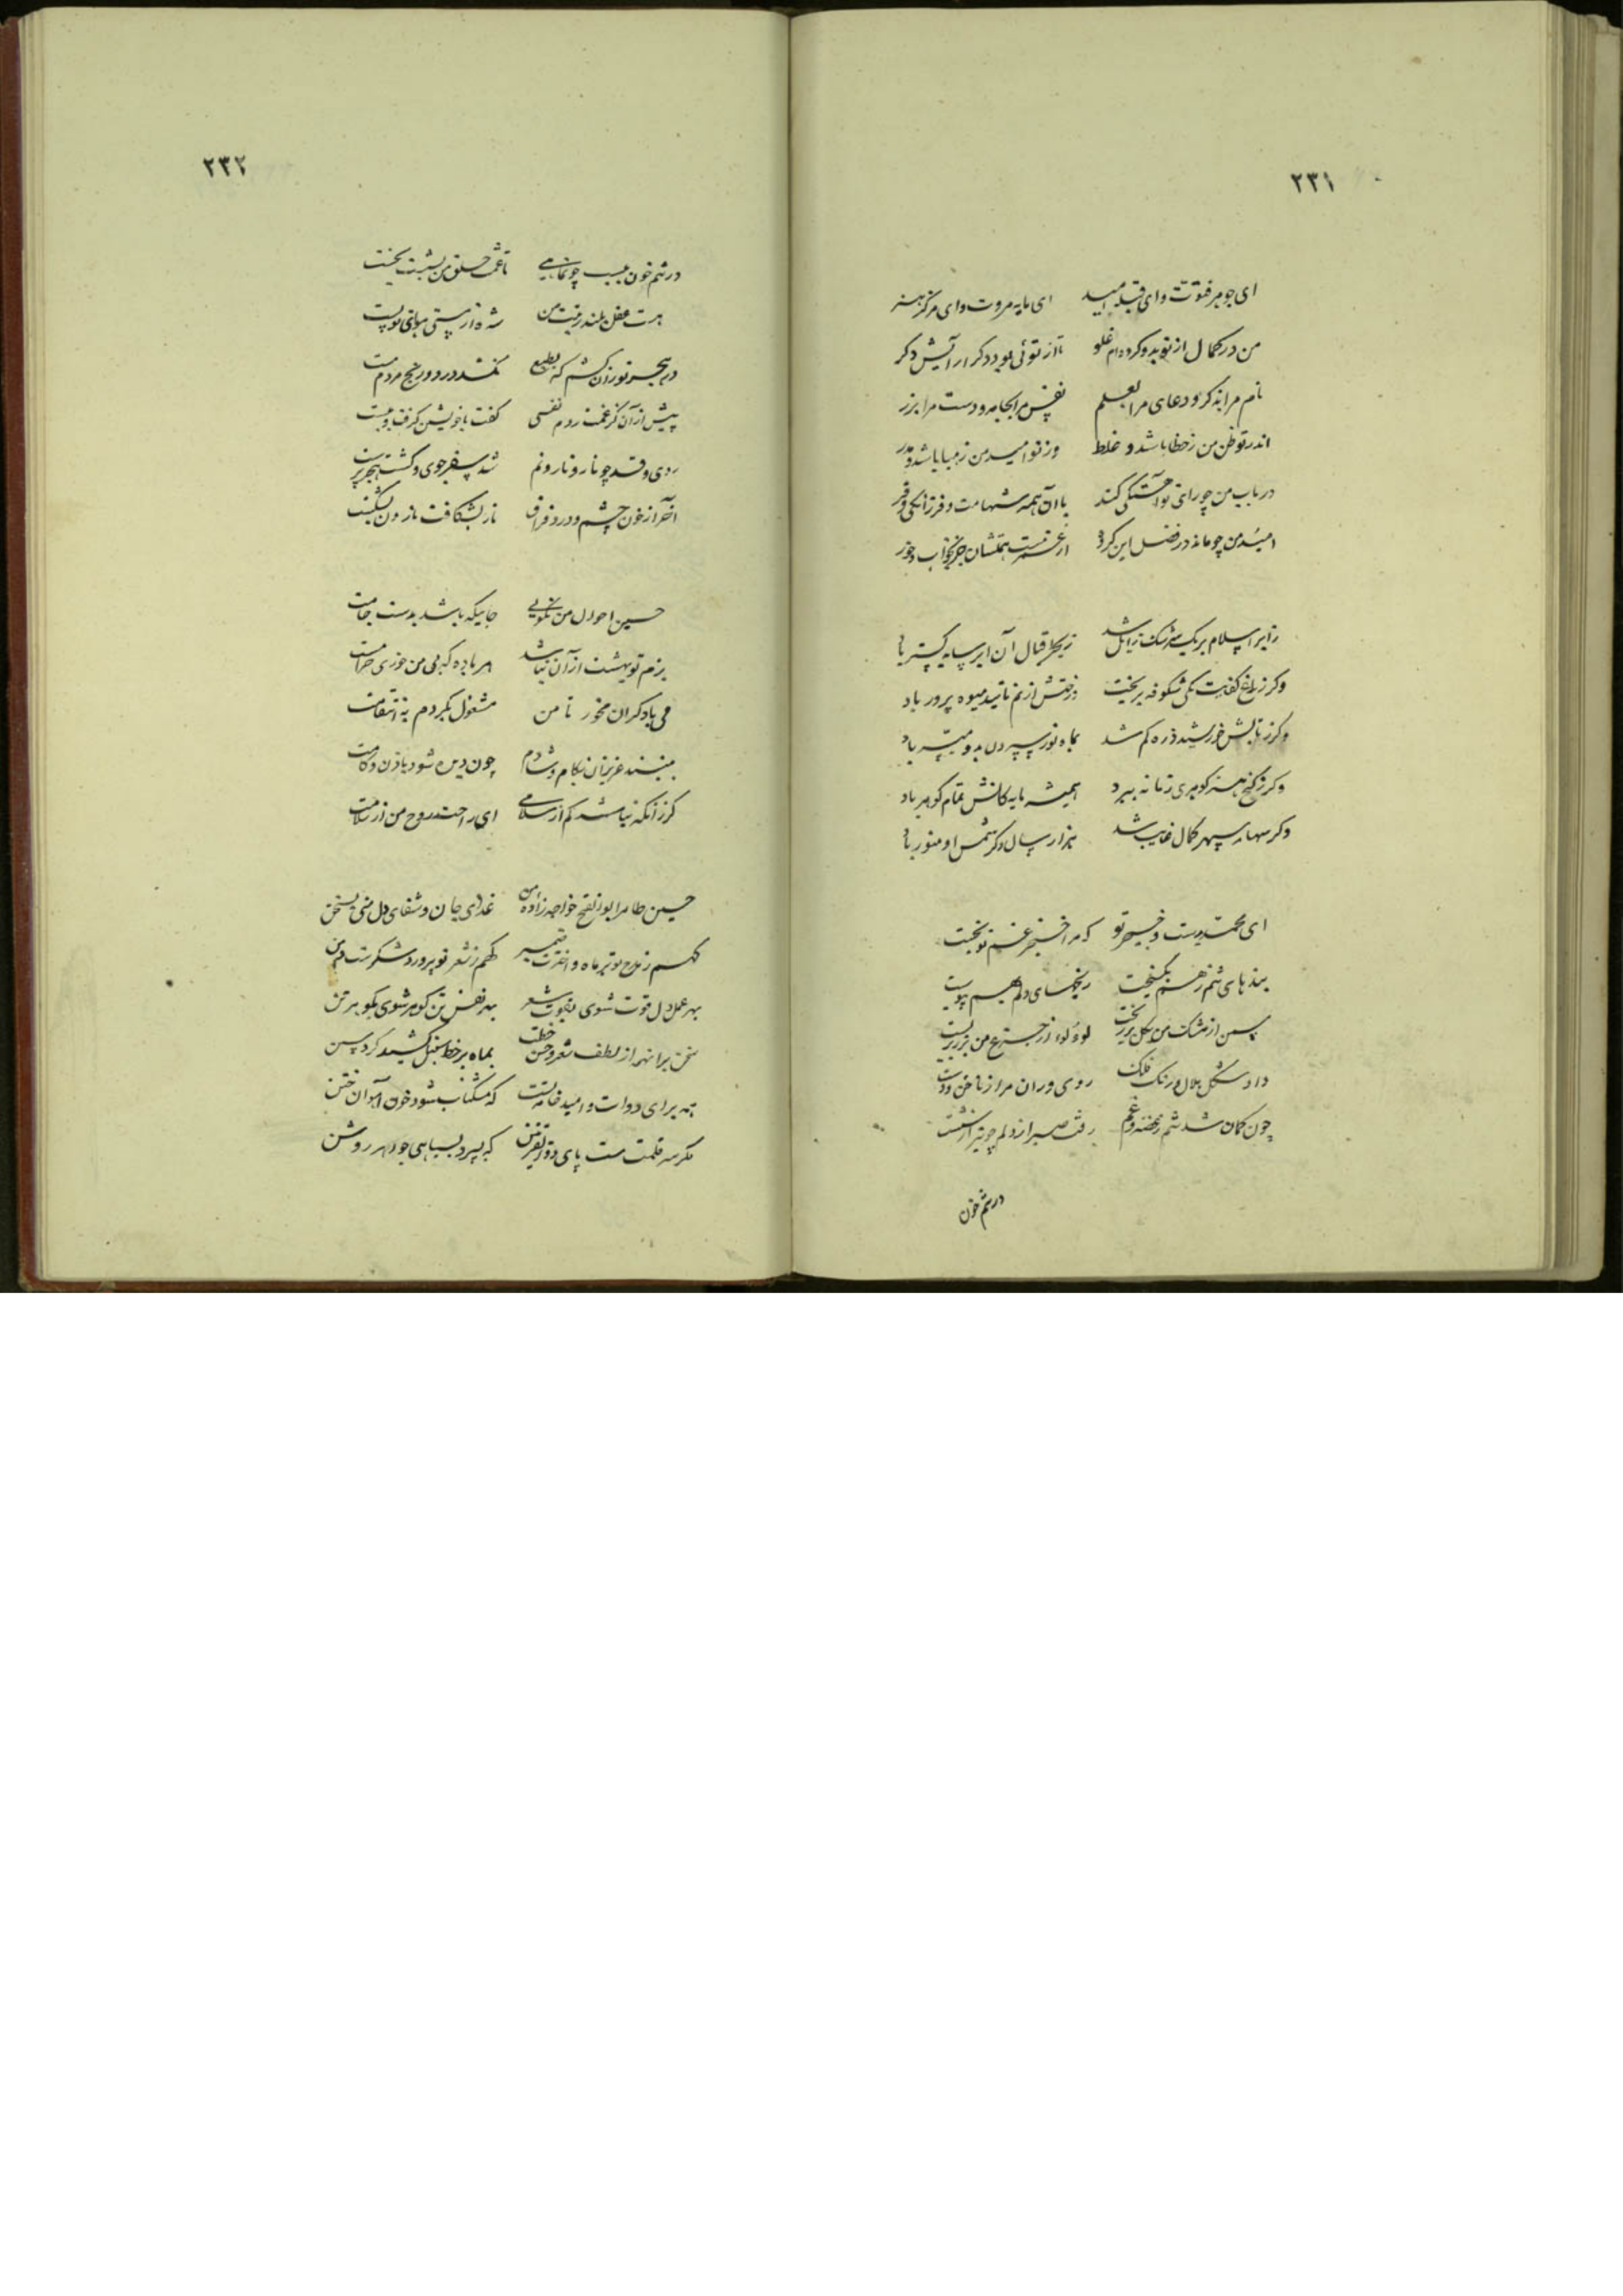 ۲۳۱
ای جوهر فتوت وای قبله امید ای مایه مروت وای مرکز هنر
من در کمال از تو بدو کرده ام غلو تا از توئی بود دکر ار آیش دکر
نام مرا بذکر و دعای مرا بعلم نفس مرا بجامه و دست مرا بزر
اندر تو ظن من ز خطا باشد و غلط وز تو امید من ز هبا باشد و هدر
در باب من چو رای تو آهستگی کند با آن همه شهامت و فرزانگی و فر
امید من چو ماند در فضل این کروه
ز ابر اسلام بر یک سرشک زایل شد ز بحر اقبال آن ابر سایه کستر باد
وکر ز باغ کفایت یکی شکوفه بریخت درختش از نم تایید میوه پرور باد
وکر ز تابش خورشید ذره کم شد بماه نور سپردن بدو میسر باد
وکر ز کنج هنر کوهری زمانه ببرد همیشه مایه کانش تمام کوهر باد
وکر سهاء سپهر کمال غایب شد هزار سال دکر شمس او منور باد
ای محمد بدست خنجر تو که مرا خنجر غم تو بخست
بندهای تنم ز هم بکسیخت رنجهای دلم بهم پیوست
سمن از مشک من بکل بر ریخت لؤلؤ از جزع من بزر بر بست
داد شکل هلال و رنک فلک روی وران مرا ز ناخن و دست
چون کمان شد تنم ز غصه و غم رفت صبر از دلم چو تیر از شست
در تنم خون
۲۳۲
در تنم خون بسبب چو نماند همی تا غمت حلق من بشست بخست
هست عقل بلند رتبت من شده از پستی هوای تو پست
در هجر تو زان کشم که بطبع نکشد درد و رنج مردم مست
پیش از آن کز غمت زدم نفسی کفت با خویشتن کرفت و ببست
روی و قد چو نار و نارونم شد سفرجوی و کشت
آخر از خون چشم و درد فراق نار بشکافت نارون بشکست
حسین احوال من نکویی جاییکه باشد بدست جامت
بزم تو بهشت از آن نباشد هر باده که بی من خوری حرامت
می یاد کران مخور تا من مشغول نکردم به انتقامت
ببینند عزیزان بکام و شادم چون دیده شود
کر زانکه نباشد کم از سلامی ای راحت روح من از سلامت
حسین طاهر ابو الفتح خواجه زاده من غذای جان و شفای دل منی بسخن
نهم ز مدح تو پر ماه و اخترست ضمیر کهم ز شعر تو پر ورد شکرست دهن
بهر عمل دل قوت شوی بقوت شعر بهر نفس تن کوهر شوی بکوهر تن
سخن برانم از لطف شعر و حسن خطت بماه بر خط سنبل کشید کرد سمن
نه برای دوات و امید خامه تست که مشکناب شود خون آهوان ختن
مکر سر قلمت هست پای ذو القرنین که پی برد بسیاهی جواهر روشن